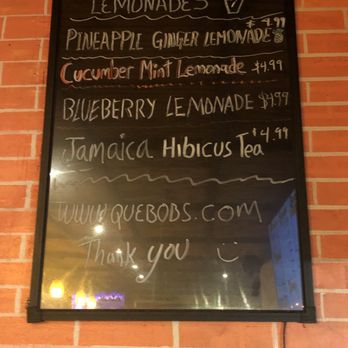 LEMONADES
PINEAPPLE GINGER LEMONADE $4.99
Cucumber Mint Lemonade $4.99
BLUEBERRY LEMONADE $4.99
Jamaica HIBICUS TEA $4.99
WWW.QUEBOBS.COM
Thank you